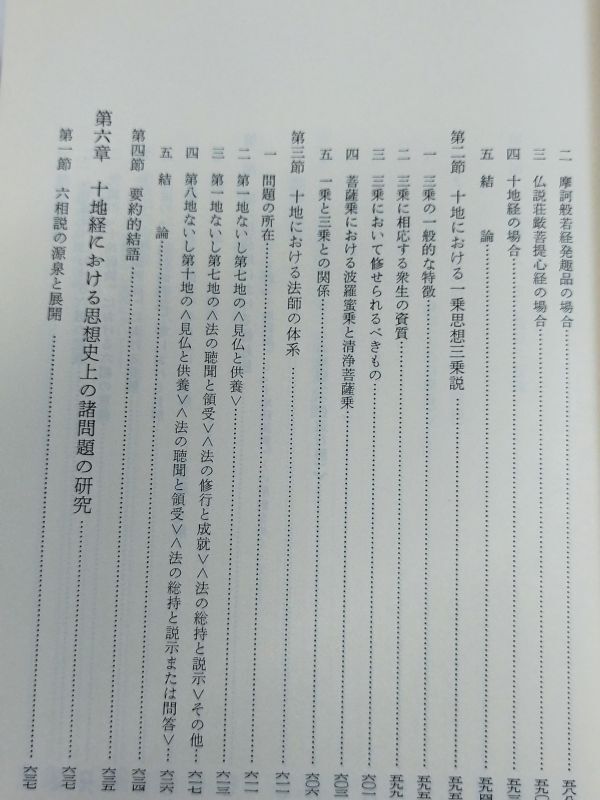 二 摩訶般若経発趣品の場合……五八八
三 仏説荘厳菩提心経の場合……五九〇
四 十地経の場合……五九二
五 結論……五九四
第二節 十地における一乗思想三乗説……五九五
一 三乗の一般的な特徴……五九五
二 三乗に相応する衆生の資質……五九九
三 三乗において修せられるべきもの……六〇一
四 菩薩乗における波羅蜜乗と清浄菩薩乗……六〇三
五 一乗と三乗との関係……六〇六
第三節 十地における法師の体系……六一一
一 問題の所在……六一一
二 第一地ないし第七地の＜見仏と供養＞……六一三
三 第一地ないし第七地の＜法の聴聞と領受＞＜法の修行と成就＞＜法の総持と説示＞その他……六一七
四 第八地ないし第十地の＜見仏と供養＞＜法の聴聞と領受＞＜法の総持と説示または問答＞……六二六
五 結論……六三四
第四節 要約的結語……六三五
第六章 十地経における思想史上の諸問題の研究……六三七
第一節 六相説の源泉と展開……六三七